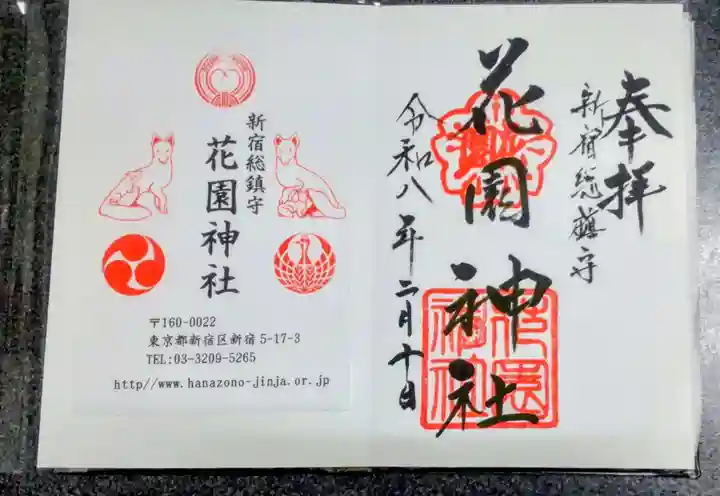 新宿総鎮守
花園神社
〒160-0022
東京都新宿区新宿5-17-3
TEL:03-3209-5265
http//www.hanazono-jinja.or.jp
奉拝
新宿総鎮守
花園神社
令和八年二月十日
花園
神社